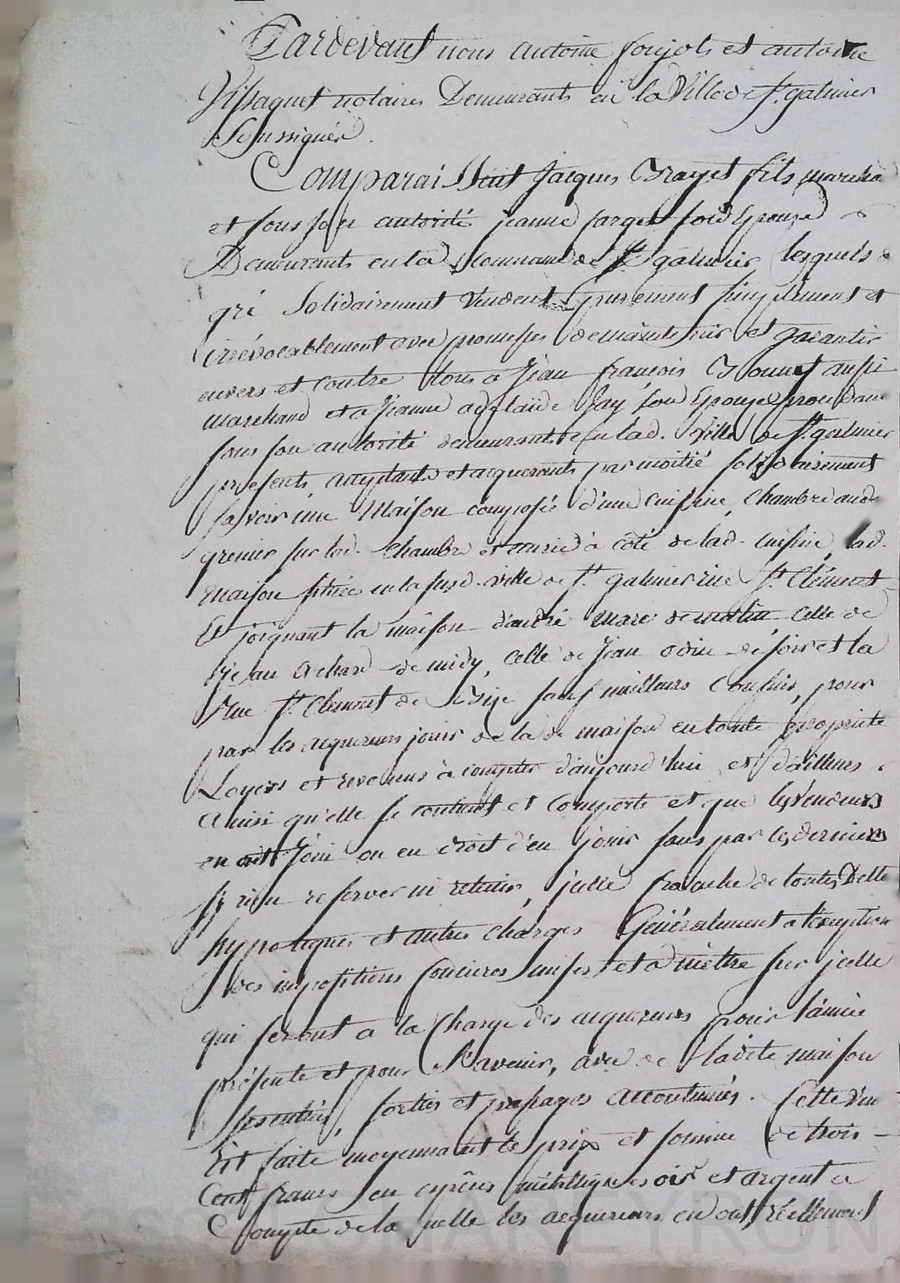 Pardevant nous antoine soujols et antoine
notaires Demeurants en la Ville de St. galmier
Soussignés.
Comparaissent Jacques fils
et sous son autorité jeanne son Epouse
Demeurants en lad. Commune de St galmier lesquels
gré Solidairement Vendent purement simplement et
irrévocablement avec promesses de maintenir et garantir
envers et contre tous a Jean françois aussi
Marchand et a Jeanne adelaïde son Epouse
sous son autorité demeurants en lad. Ville de St. galmier
présents acceptants et acquerants par moitié solidairement
savoir une Maison composée d'une cuisine, Chambre
grenier sur lad. Chambre et à côté de lad. cuisine, lad.
maison sitüée en la susd. ville de St. galmier rue St. Clément
Et joignant la maison d'andré Marc de matin, celle de
Jean Achard de midy, celle de Jean odin de soir et la
Rue St. Clément de Bize sauf meilleurs Confins, pour
par les acquereurs jouir de la de maison en toute propriété
Loyers et revenus à compter d'aujourd'hui et d'ailleurs
ainsi qu'elle se contient et Comporte et que les Vendeurs
en ont Joüi ou eu droit d'en jouir sans par les derniers
rien reserver ni retenir, icelle franche de toutes Dettes
hypotèques et autres charges Généralement a l'exception
des impositions foncieres mises et a mèttre sur icelle
qui seront a la Charge des acquereurs pour l'année
présente et pour l'avenir, avec de ladite maison
ses entrées, sorties et passages accoutumés. Cette
Est faite moyennant le prix et somme de trois
Cent francs en espèces métalliques or et argent a
Compte de laquelle les acquereurs en ont réellement